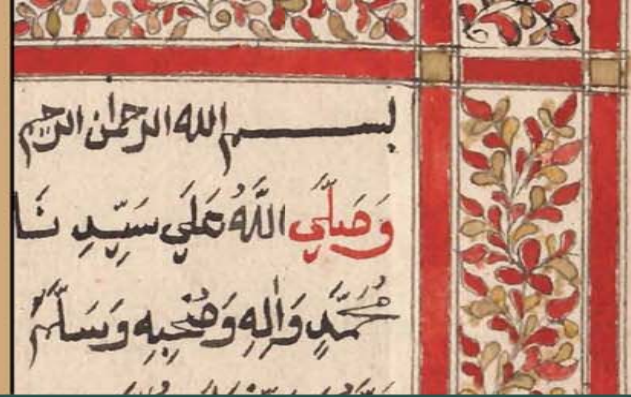 بسم الله الرحمان الرحيم
وَصَلَّي اللَّهُ عَلَي سَيِّدِ نَا
مُحَمَّدٍ وَاٰلِهِ وَصَحْبِهِ وَسَلَّمْ